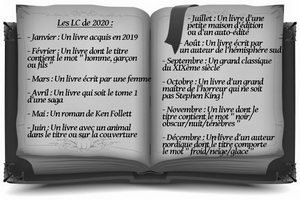 Les LC de 2020 :
- Janvier : Un livre acquis en 2019
- Février : Un livre dont le titre
contient le mot " homme, garçon
ou fils "
- Mars : Un livre écrit par une femme
- Avril : Un livre qui soit le tome 1
d'une saga
- Mai : Un roman de Ken Follett
- Juin : Un livre avec un animal
dans le titre ou sur la couverture
- Juillet : Un livre d'une
petite maison d'édition
ou d'un auto-édité
- Août : Un livre écrit par
un auteur de l'hémisphère sud
- Septembre : Un grand classique
du XIXème siècle
- Octobre : Un livre d'un grand
maître de l'horreur qui ne soit
pas Stephen King !
- Novembre : Un livre dont le
titre contient le mot " noir/
obscur/nuit/ténèbres "
- Décembre : Un livre d'un auteur
nordique dont le titre comporte
le mot " froid/neige/glace "